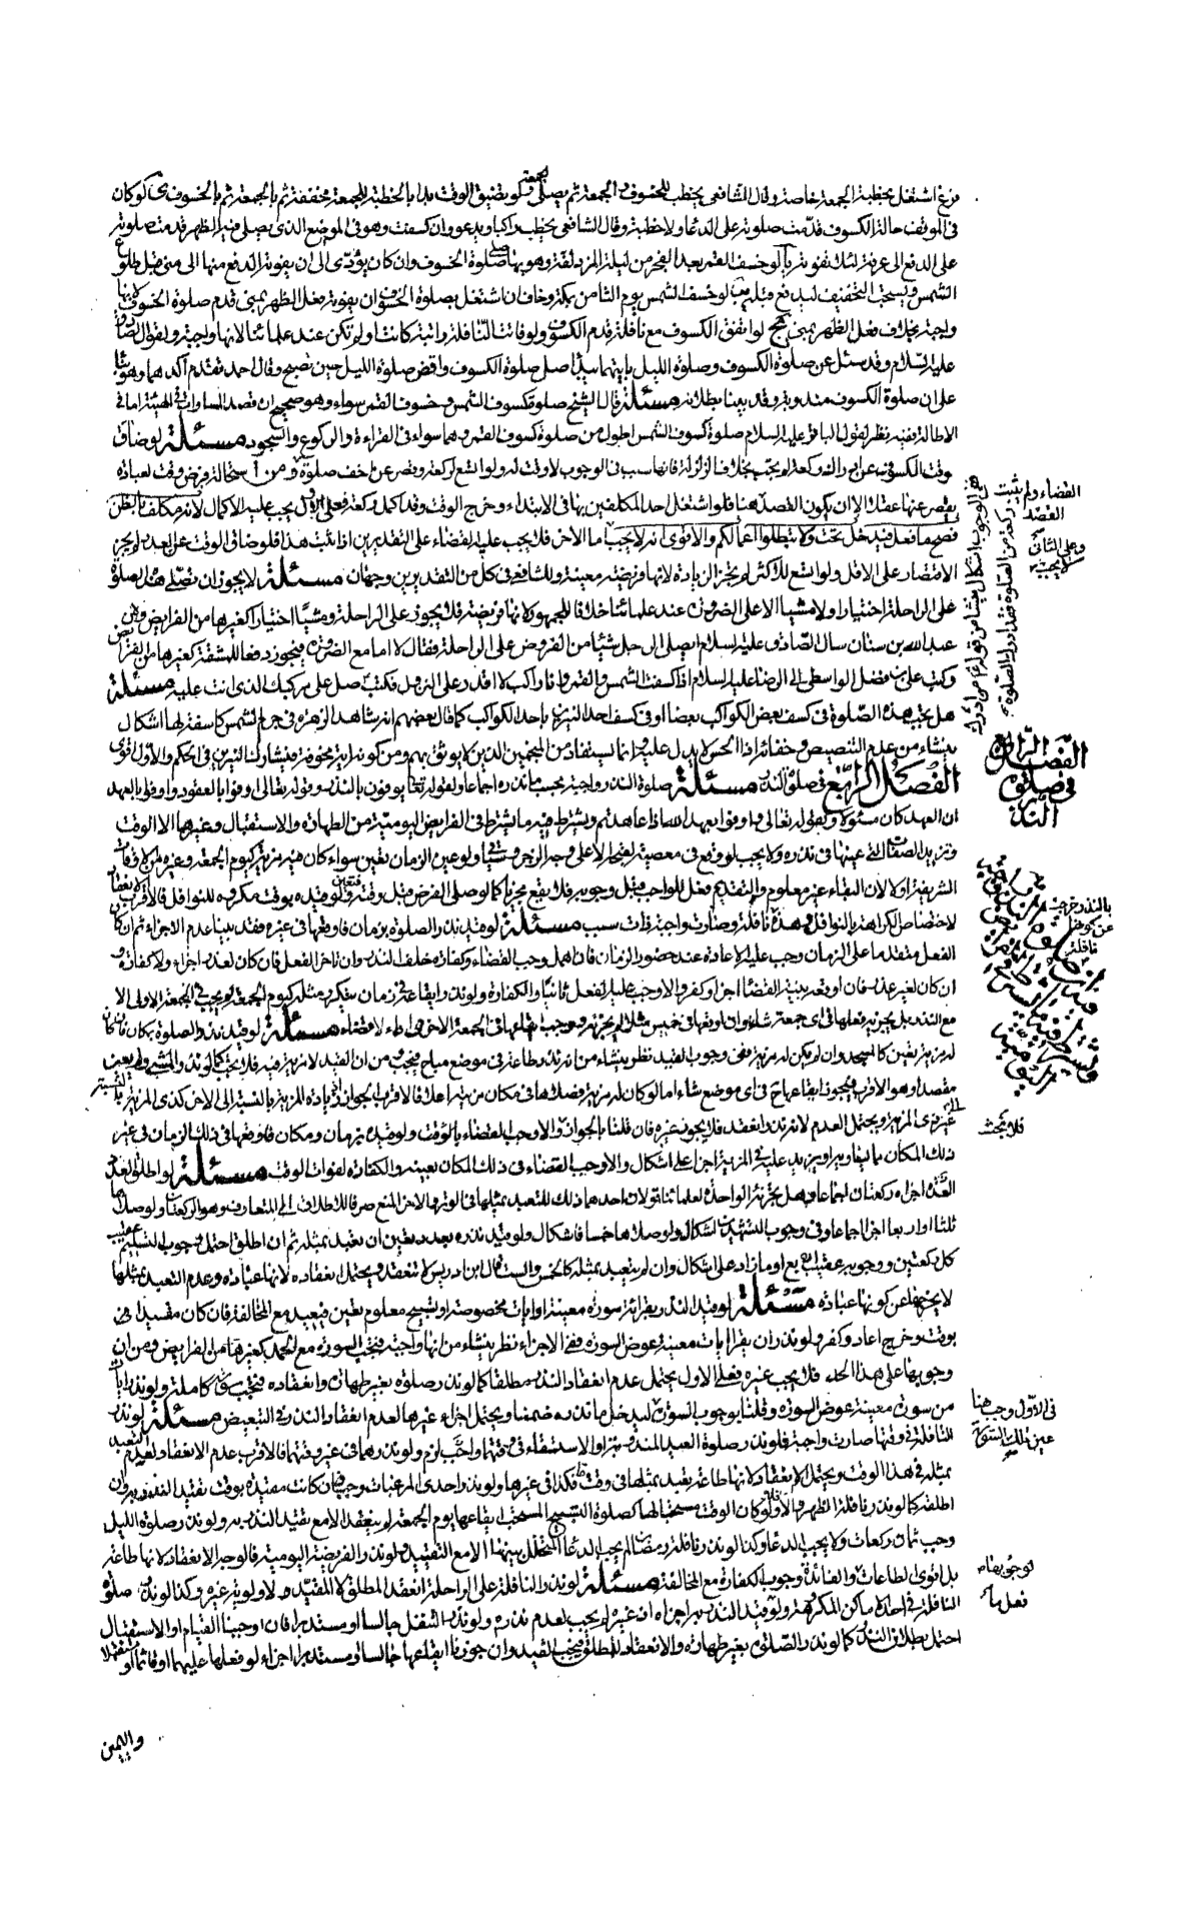 فرغ اشتغل بخطبة الجمعة خاصة وقال الشافعي يخطب للخسوف والجمعة ثم يصلي الجمعة ولو بضيق الوقت بدا بالخطبة للجمعة مخففة ثم بالجمعة ثم بالخسوف لو كان
في الموقف حالة الكسوف قدمت صلوته على الدعاء ولا خطبة وقال الشافعي يخطب راكبا ويدعو وان كسفت وهو في الموضع الذي يصلي فيه الظهر قدمت صلوته
على الدفع الى عرفة لئلا تفوته لو خسف القمر بعد الفجر من ليلة المزدلفة وهو بها صلى صلوة الخسوف وان كان يؤدي الى ان يفوته الدفع منها الى منى قبل طلوع
الشمس ويستحب التخفيف ليدفع قبله لو خسف الشمس يوم الثامن بمكة وخاف ان اشتغل بصلوة الخسوف ان يفوته فعل الظهر بمنى قدم صلوة الخسوف لانها
واجبة بخلاف فعل الظهر بمنى لو اتفق الكسوف مع نافلة قدم الكسوف ولو فاتت النافلة راتبة كانت او لم تكن عند علمائنا لانها واجبة ولقول الصادق
عليه السلام وقد سئل عن صلوة الكسوف وصلوة الليل بايتهما يبدأ صلى صلوة الكسوف واقض صلوة الليل حين تصبح وقال احمد تقدم آكدهما وهو بناء
على ان صلوة الكسوف مندوبة وقد بينا بطلانه مسئلة قال الشيخ صلوة كسوف الشمس وخسوف القمر سواء وهو صحيح ان قصد المساواة في الهيئة اما في
الاطالة ففيه نظر لقول الباقر عليه السلام صلوة كسوف الشمس اطول من صلوة كسوف القمر وهما سواء في القراءة والركوع والسجود مسئلة لو ضاق
وقت الكسوف عن ادراك ركعة لم يجب بخلاف الزلزلة فانها سبب في الوجوب لا وقت له ولو اتسع لركعة وقصر عن اخف صلوة من استحالة فرض وقت لعبادة
يقصر عنها عقلا الا ان يكون القصد هنا فلو اشتغل احد المكلفين بها في الابتداء وخرج الوقت وقد اكمل ركعة فعلى الاول يجب عليه الاكمال لانه مكلف بالظن
فصح ما فعل فيدخل تحت ولا تبطلوا اعمالكم والاقوى انه لا يجب اما الآخر فلا يجب عليه القضاء على التقديرين اذا ثبت هذا فلو ضاق الوقت عن العدد لم يجز
الاقتصار على الاقل ولو اتسع للاكثر لم تجز الزيادة لانها فريضة معينة وللشافعي في كل من التقديرين وجهان مسئلة لا يجوز ان تصلى هذه الصلوة
على الراحلة اختيارا ولا مشيا الا على الضرورة عند علمائنا خلافا للجمهور لانها فريضة فلا يجوز على الراحلة ومشيا اختيارا كغيرها من الفرايض ولان
عبد الله بن سنان سال الصادق عليه السلام ايصلي الرجل شيئا من الفروض على الراحلة فقال لا اما مع الضرورة فيجوز دفعا للمشقة كغيرها من الفرايض
وكتب علي بن فضل الواسطي الى الرضا عليه السلام اذا كسفت الشمس والقمر وانا راكب لا اقدر على النزول فكتب صل على مركبك الذي انت عليه مسئلة
هل تجب هذه الصلوة في كسف بعض الكواكب بعضا او في كسف احد النيرين باحد الكواكب كما قال بعضهم انه شاهد الزهرة في جرم الشمس كاسفة لها اشكال
ينشاء من عدم التنصيص وخفائه اذا الحس لا يدل عليه وانما يستفاد من المنجمين الذين لا يوثق بهم ومن كونه اية مخوفة فيشارك النيرين في الحكم والاول اقوى
الفصل الرابع في صلوة النذر مسئلة صلوة النذر واجبة بحسب ما نذره اجماعا ولقوله تعالى يوفون بالنذر وقوله تعالى اوفوا بالعقود واوفوا بالعهد
ان العهد كان مسئولا ولقوله تعالى واوفوا بعهد الله اذا عاهدتم ويشترط فيه ما يشترط في الفرايض اليومية من الطهارة والاستقبال وغيرها الا الوقت
وتزيد الصفات التي عينها في نذره ولا يجب لو وقع في معصية ولو عين الزمان تعين سواء كان فيه مزية كيوم الجمعة وغيره من الاوقات
الشريفة او لا لان البقاء غير معلوم والتقديم فعل للواجب قبل وجوبه فلا يقع مجزيا كما لو صلى الفرض قبل وقته ولو قيده بوقت مكروه للنوافل فالاقرب الانعقاد
لاختصاص الكراهة بالنوافل وهذه نافلة وصارت واجبة ذات سبب مسئلة لو قيد نذر الصلوة بزمان فاوقعها في غيره فقد بينا عدم الاجزاء ثم ان كان
الفعل متقدما على الزمان وجب عليه الاعادة عند حضور الزمان فان اهمل وجب القضاء وكفارة خلف النذر وان تاخر الفعل فان كان لعذر اجزاء ولا كفارة و
ان كان لغير عذر فان اوقعه بنية القضاء اجزا وكفر والا وجب عليه الفعل ثانيا والكفارة ولو نذر ايقاعه في زمان يتكرر مثله كيوم الجمعة لم يجب في الجمعة الاولى الا
مع النذر بل يجزيه فعلها في اى جمعة شاء وان اوقعها في خميس مثلا لم يجزه ووجب فعلها في الجمعة الاخرى اداء لا قضاء مسئلة لو قيد نذر الصلوة بمكان فان كان
له مزية تعين كالمسجد وان لم يكن له مزية ففي وجوب القيد نظر ينشاء من انه نذر طاعة في موضع مباح فيجب ومن ان القيد لا مزية فيه فلا يجب كما لو نذر المشي
مقصدا وهو الاقرب فيجوز ايقاعها في اى موضع شاء اما لو كان له مزية فصلاها في مكان مزيته اعلا فالاقرب الجواز لان زيادة المزية بالنسبة الى الآخر كذي المزية بالنسبة
الى غير ذي المزية ويحتمل العدم لانه نذر انعقد فلا يجوز غيره فان قلنا بالجواز والا وجب القضاء بالوقت ولو قيده بزمان ومكان فاوقعها في ذلك الزمان في غير
ذلك المكان مما يساويه او يزيد عليه في المزية اجزا على اشكال والا وجب القضاء في ذلك المكان بعينه والكفارة لفوات الوقت مسئلة لو اطلق العدد
اجزاه ركعتان اجماعا وهل تجزيه الواحدة لعلمائنا قولان احدهما ذلك للتعبد بمثلها في الوتر والآخر المنع صرفا للاطلاق الى المتعارف وهو الركعتان ولو صلاها
ثلثا او اربعا اجزا اجماعا وفي وجوب التشهدين اشكال ولو صلاها خمسا فاشكال ولو قيد نذره بعدد تعين ان تعبد بمثله ثم ان اطلق احتمل وجوب التسليم عقيب
كل ركعتين ووجوبه عقيب اربع او ما زاد على اشكال وان لم يتعبد بمثله كالخمس والست قال ابن ادريس لا تنعقد ويحتمل انعقاده لانها عبادة وعدم التعبد بمثلها
لا يخرجها عن كونها عبادة مسئلة لو قيد النذر بقراءة سورة معينة او ايات مخصوصة او تسبيح معلوم تعين فيعيد مع المخالفة فان كان مقيدا
بوقت وخرج اعاد وكفر ولو نذر ان يقرا ايات معينة عوض السورة ففي الاجزاء نظر ينشاء من انها واجبة فتجب السورة مع الحمد كغيرها من الفرايض ومن ان
وجوبها على هذا الحد فلا يجب غيره فعلى الاول يحتمل عدم انعقاد النذر مطلقا كما لو نذر صلوة بغير طهارة وانعقاده فتجب سورة كاملة ولو نذر اية
من سورة معينة عوض السورة وقلنا بوجوب السورة ليدخل ما نذره ضمنا ويحتمل اجزاء غيرها لعدم انعقاد النذر في التبعيض مسئلة لو نذر
النافلة في وقتها صارت واجبة فلو نذر صلوة العيد المندوبة او الاستسقاء في وقتها وجب لزم ولو نذرهما في غير وقتهما فالاقرب عدم الانعقاد لعدم التعبد
بمثله في هذا الوقت ويحتمل الانعقاد لانها طاعة تعبد بمثلها في وقت فكذا في غيرها ولو نذر احدى المرغبات وجبت فان كانت مقيدة بوقت تقيد النذر به وان
اطلقه كما لو نذر نافلة الظهر والا ولو كان الوقت مستحبا لها كصلوة التسبيح المستحب ايقاعها يوم الجمعة لم ينعقد الا مع تقييد النذر به ولو نذر صلوة الليل
وجب ثمان ركعات ولا يجب الدعاء وكذا لو نذر نافلة رمضان لم يجب الدعاء المتخلل بينها الا مع التقييد ولو نذر الفريضة اليومية فالوجه الانعقاد لانها طاعة
بل اقوى الطاعات والفائدة وجوب الكفارة مع المخالفة مسئلة لو نذر النافلة على الراحلة انعقد المطلق لا المقيد لاولوية غيره وكذا لو نذر صلوة
النافلة في احد الاماكن المكروهة ولو قيد النذر به اجزاه اذ غيره لم يجب لعدم نذره ولو نذر التنفل جالسا او مستدبرا فان اوجبنا القيام او الاستقبال
احتمل بطلان النذر كما لو نذر الصلوة بغير طهارة والانعقاد للمطلق فيجب القيد وان جوزنا ايقاعها جالسا او مستدبرا اجزاء لو فعلها عليهما او قائما او مستقبلا
القضاء ولم يثبت
القصد
وعلى الثاني
لا يجب
الفصل الرابع
في صلوة
النذر
بالنذر خرجت
عن كونها
نافلة
فلا يجب
في الاول وجب هنا
عين تلك السورة
لوجوبها
فعل ما
واليمين